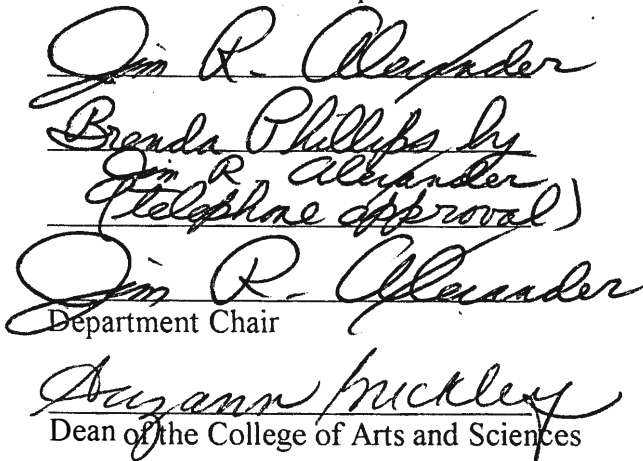 Jim R. Alexander
Brenda Phillips by
Jim R. Alexander
(telephone approval)
Jim R. Alexander
Department Chair
Suzann
Dean of the College of Arts and Sciences